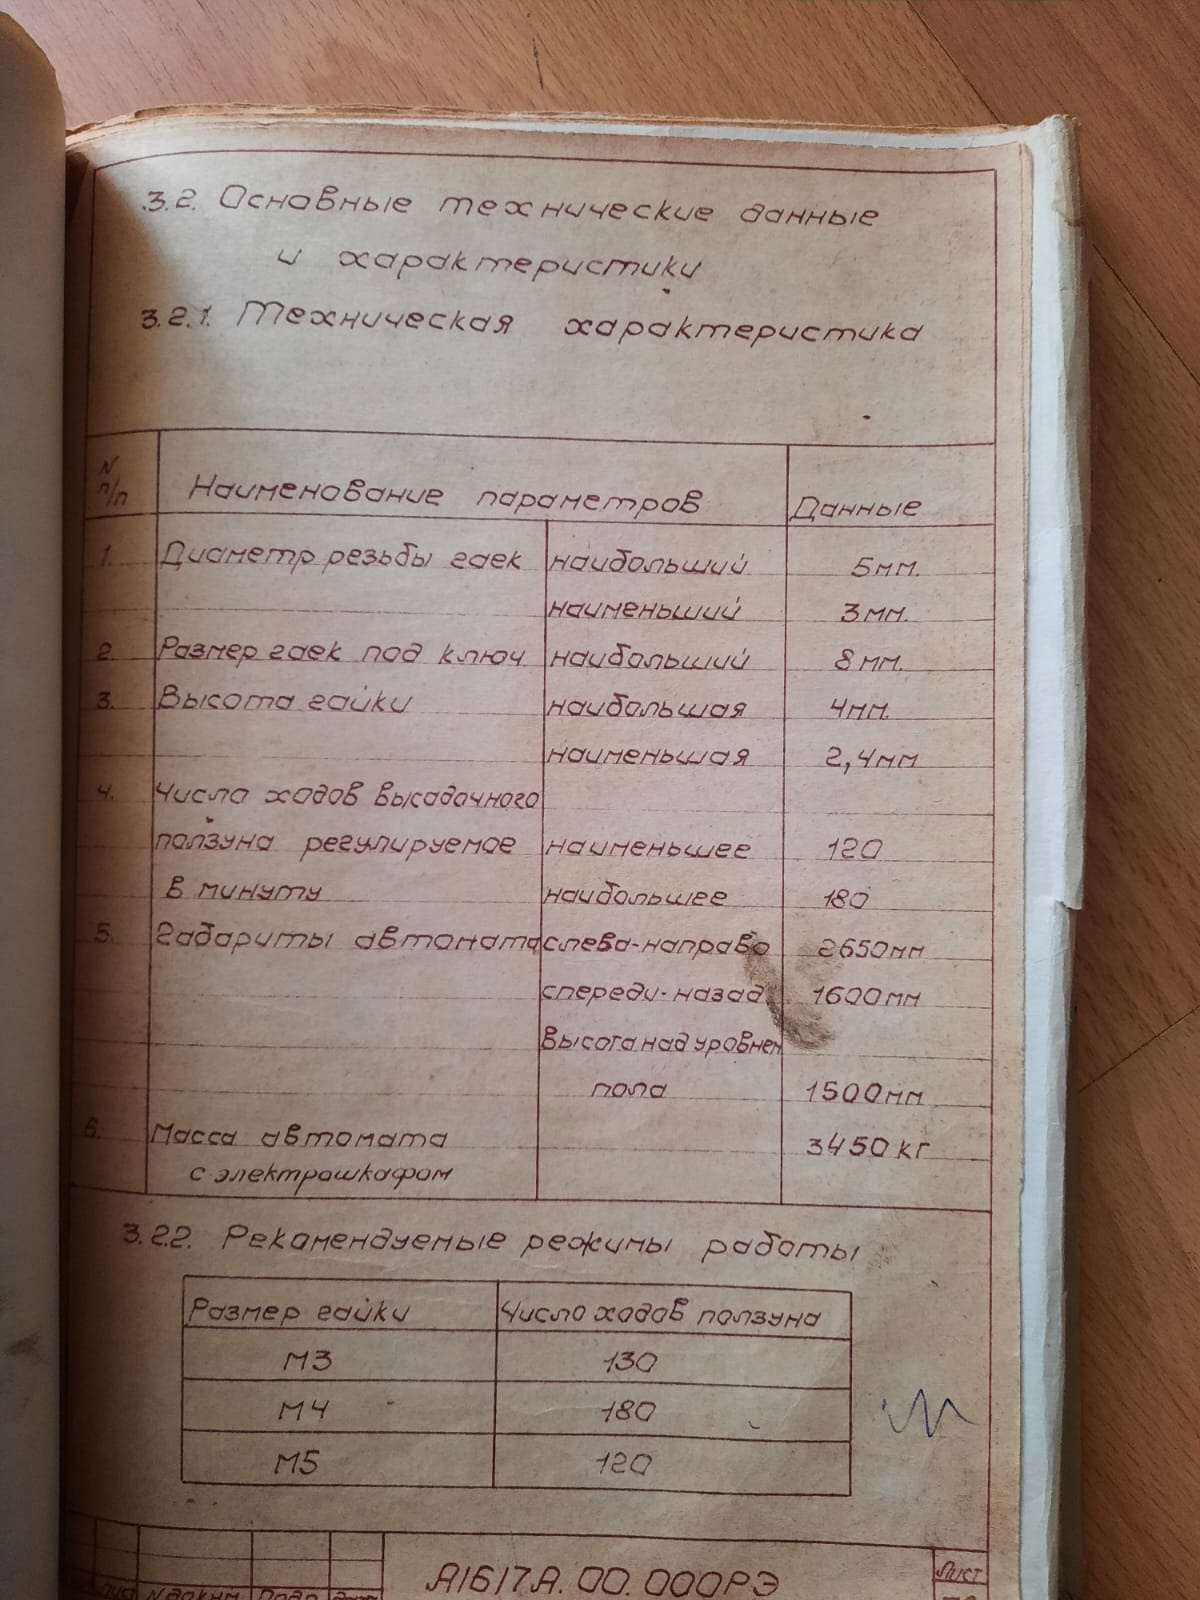 3.2. Основные технические данные
и характеристики
3.2.1. Техническая характеристика
N п/п Наименование параметров Данные
1. Диаметр резьбы гаек наибольший 5мм.
наименьший 3мм.
2. Размер гаек под ключ наибольший 8мм.
3. Высота гайки наибольшая 4мм.
наименьшая 2,4мм
4. Число ходов высадочного
ползуна регулируемое наименьшее 120
в минуту наибольшее 180
5. Габариты автомата слева-направо 2650мм
спереди-назад 1600мм
высота над уровнем
пола 1500мм
6. Масса автомата 3450кг
с электрошкафом
3.2.2. Рекомендуемые режимы работы
Размер гайки Число ходов ползуна
М3 130
М4 180
М5 120
А1617А.00.000РЭ
Лист
Лист N докум. Подп. Дата